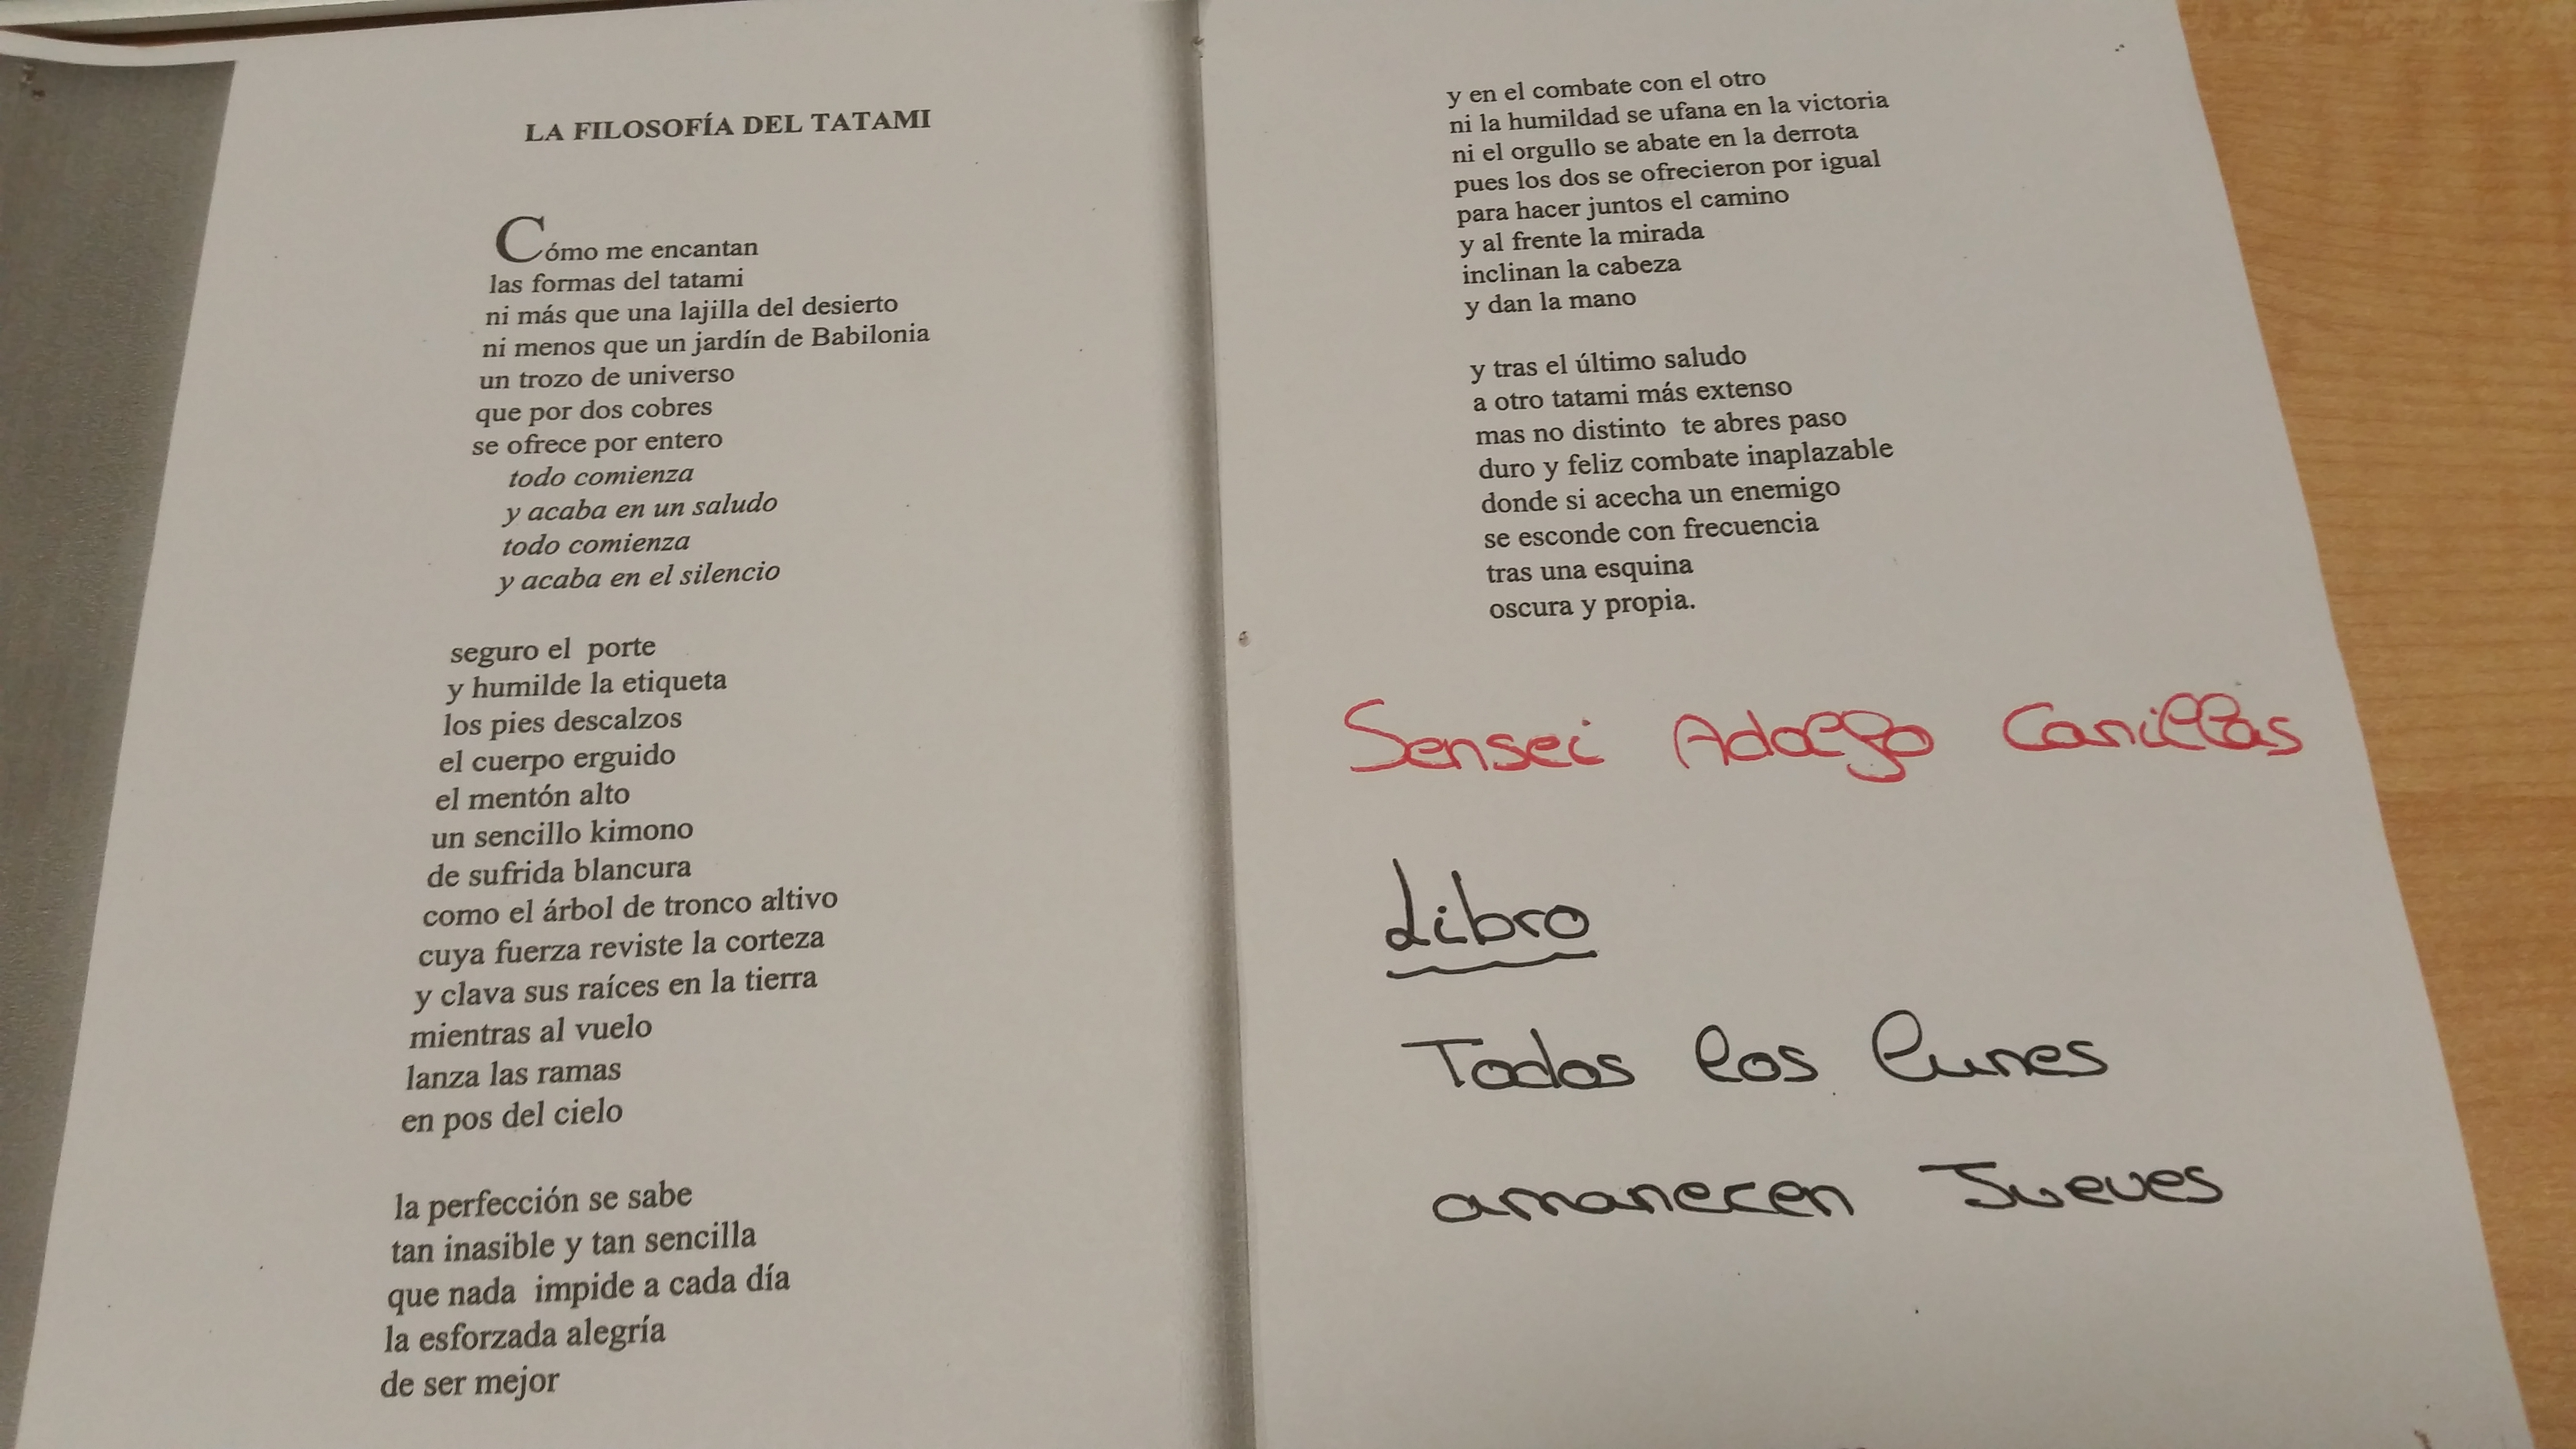 LA FILOSOFÍA DEL TATAMI
Cómo me encantan
las formas del tatami
ni más que una lajilla del desierto
ni menos que un jardín de Babilonia
un trozo de universo
que por dos cobres
se ofrece por entero
todo comienza
y acaba en un saludo
todo comienza
y acaba en el silencio
seguro el porte
y humilde la etiqueta
los pies descalzos
el cuerpo erguido
el mentón alto
un sencillo kimono
de sufrida blancura
como el árbol de tronco altivo
cuya fuerza reviste la corteza
y clava sus raíces en la tierra
mientras al vuelo
lanza las ramas
en pos del cielo
la perfección se sabe
tan inasible y tan sencilla
que nada impide a cada día
la esforzada alegría
de ser mejor
y en el combate con el otro
ni la humildad se ufana en la victoria
ni el orgullo se abate en la derrota
pues los dos se ofrecieron por igual
para hacer juntos el camino
y al frente la mirada
inclinan la cabeza
y dan la mano
y tras el último saludo
a otro tatami más extenso
mas no distinto te abres paso
duro y feliz combate inaplazable
donde si acecha un enemigo
se esconde con frecuencia
tras una esquina
oscura y propia.
Sensei Adolfo Canillas
Libro
Todos los lunes
amanecen Jueves